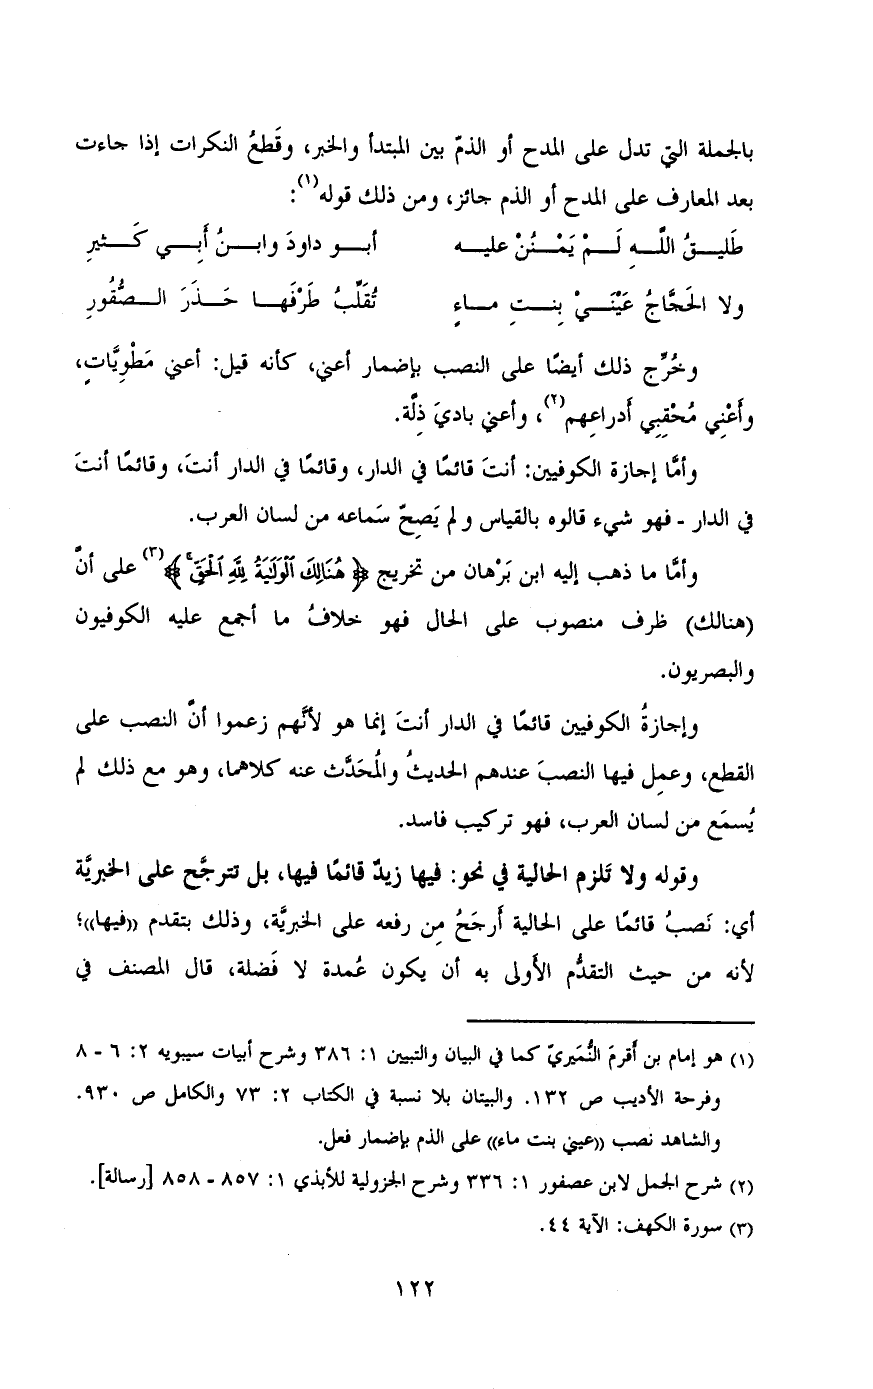 بالجملة التي تدل على المدح أو الذمّ بين المبتدأ والخبر، وقَطعُ النكرات إذا جاءت
بعد المعارف على المدح أو الذم جائز، ومن ذلك قوله(١):
طَليـــقُ اللَّـــهِ لَـــمْ يَمْـــنُنْ عليـــه أبـــو داودَ وابـــنُ أَبـــي كَـــثيرِ
ولا الحَجَّاجُ عَيْنَـــيْ بِنـــتِ مـــاءٍ تُقَلِّبُ طَرْفَهـــا حَـــذَرَ الـــصُّقُورِ
وخُرِّج ذلك أيضًا على النصب بإضمار أعني، كأنه قيل: أعني مَطْوِيَّاتٍ،
وأَعْنِي مُحْقِبِي أَدراعِهم(٢)، وأعني باديَ ذِلَّة.
وأمَّا إجازة الكوفيين: أنتَ قائمًا في الدار، وقائمًا في الدار أنتَ، وقائمًا أنتَ
في الدار - فهو شيء قالوه بالقياس ولم يَصِحّ سَماعه من لسان العرب.
وأمَّا ما ذهب إليه ابن بَرْهان من تخريج ﴿ هُنَالِكَ ٱلْوَلَٰيَةُ لِلَّهِ ٱلْحَقِّۚ ﴾(٣) على أنَّ
(هنالك) ظرف منصوب على الحال فهو خلافُ ما أجمع عليه الكوفيون
والبصريون.
وإجازةُ الكوفيين قائمًا في الدار أنتَ إنما هو لأنَّهم زعموا أنَّ النصب على
القطع، وعمِل فيها النصبَ عندهم الحديثُ والمُحَدَّث عنه كلاهما، وهو مع ذلك لم
يُسمَع من لسان العرب، فهو تركيب فاسد.
وقوله ولا تَلزم الحالية في نحو: فيها زيدٌ قائمًا فيها، بل تترجَّح على الخبريَّة
أي: نَصبُ قائمًا على الحالية أَرجَحُ مِن رفعه على الخبريَّة، وذلك بتقدم ((فيها))؛
لأنه من حيث التقدُّم الأَولى به أن يكون عُمدة لا فَضلة، قال المصنف في
(١) هو إمام بن أَقرمَ النُّمَيريّ كما في البيان والتبيين ١: ٣٨٦ وشرح أبيات سيبويه ٢: ٦ - ٨
وفرحة الأديب ص ١٣٢. والبيتان بلا نسبة في الكتاب ٢: ٧٣ والكامل ص ٩٣٠.
والشاهد نصب ((عيني بنت ماء)) على الذم بإضمار فعل.
(٢) شرح الجمل لابن عصفور ١: ٣٣٦ وشرح الجزولية للأبذي ١: ٨٥٧ - ٨٥٨ [رسالة].
(٣) سورة الكهف: الآية ٤٤.
١٢٢